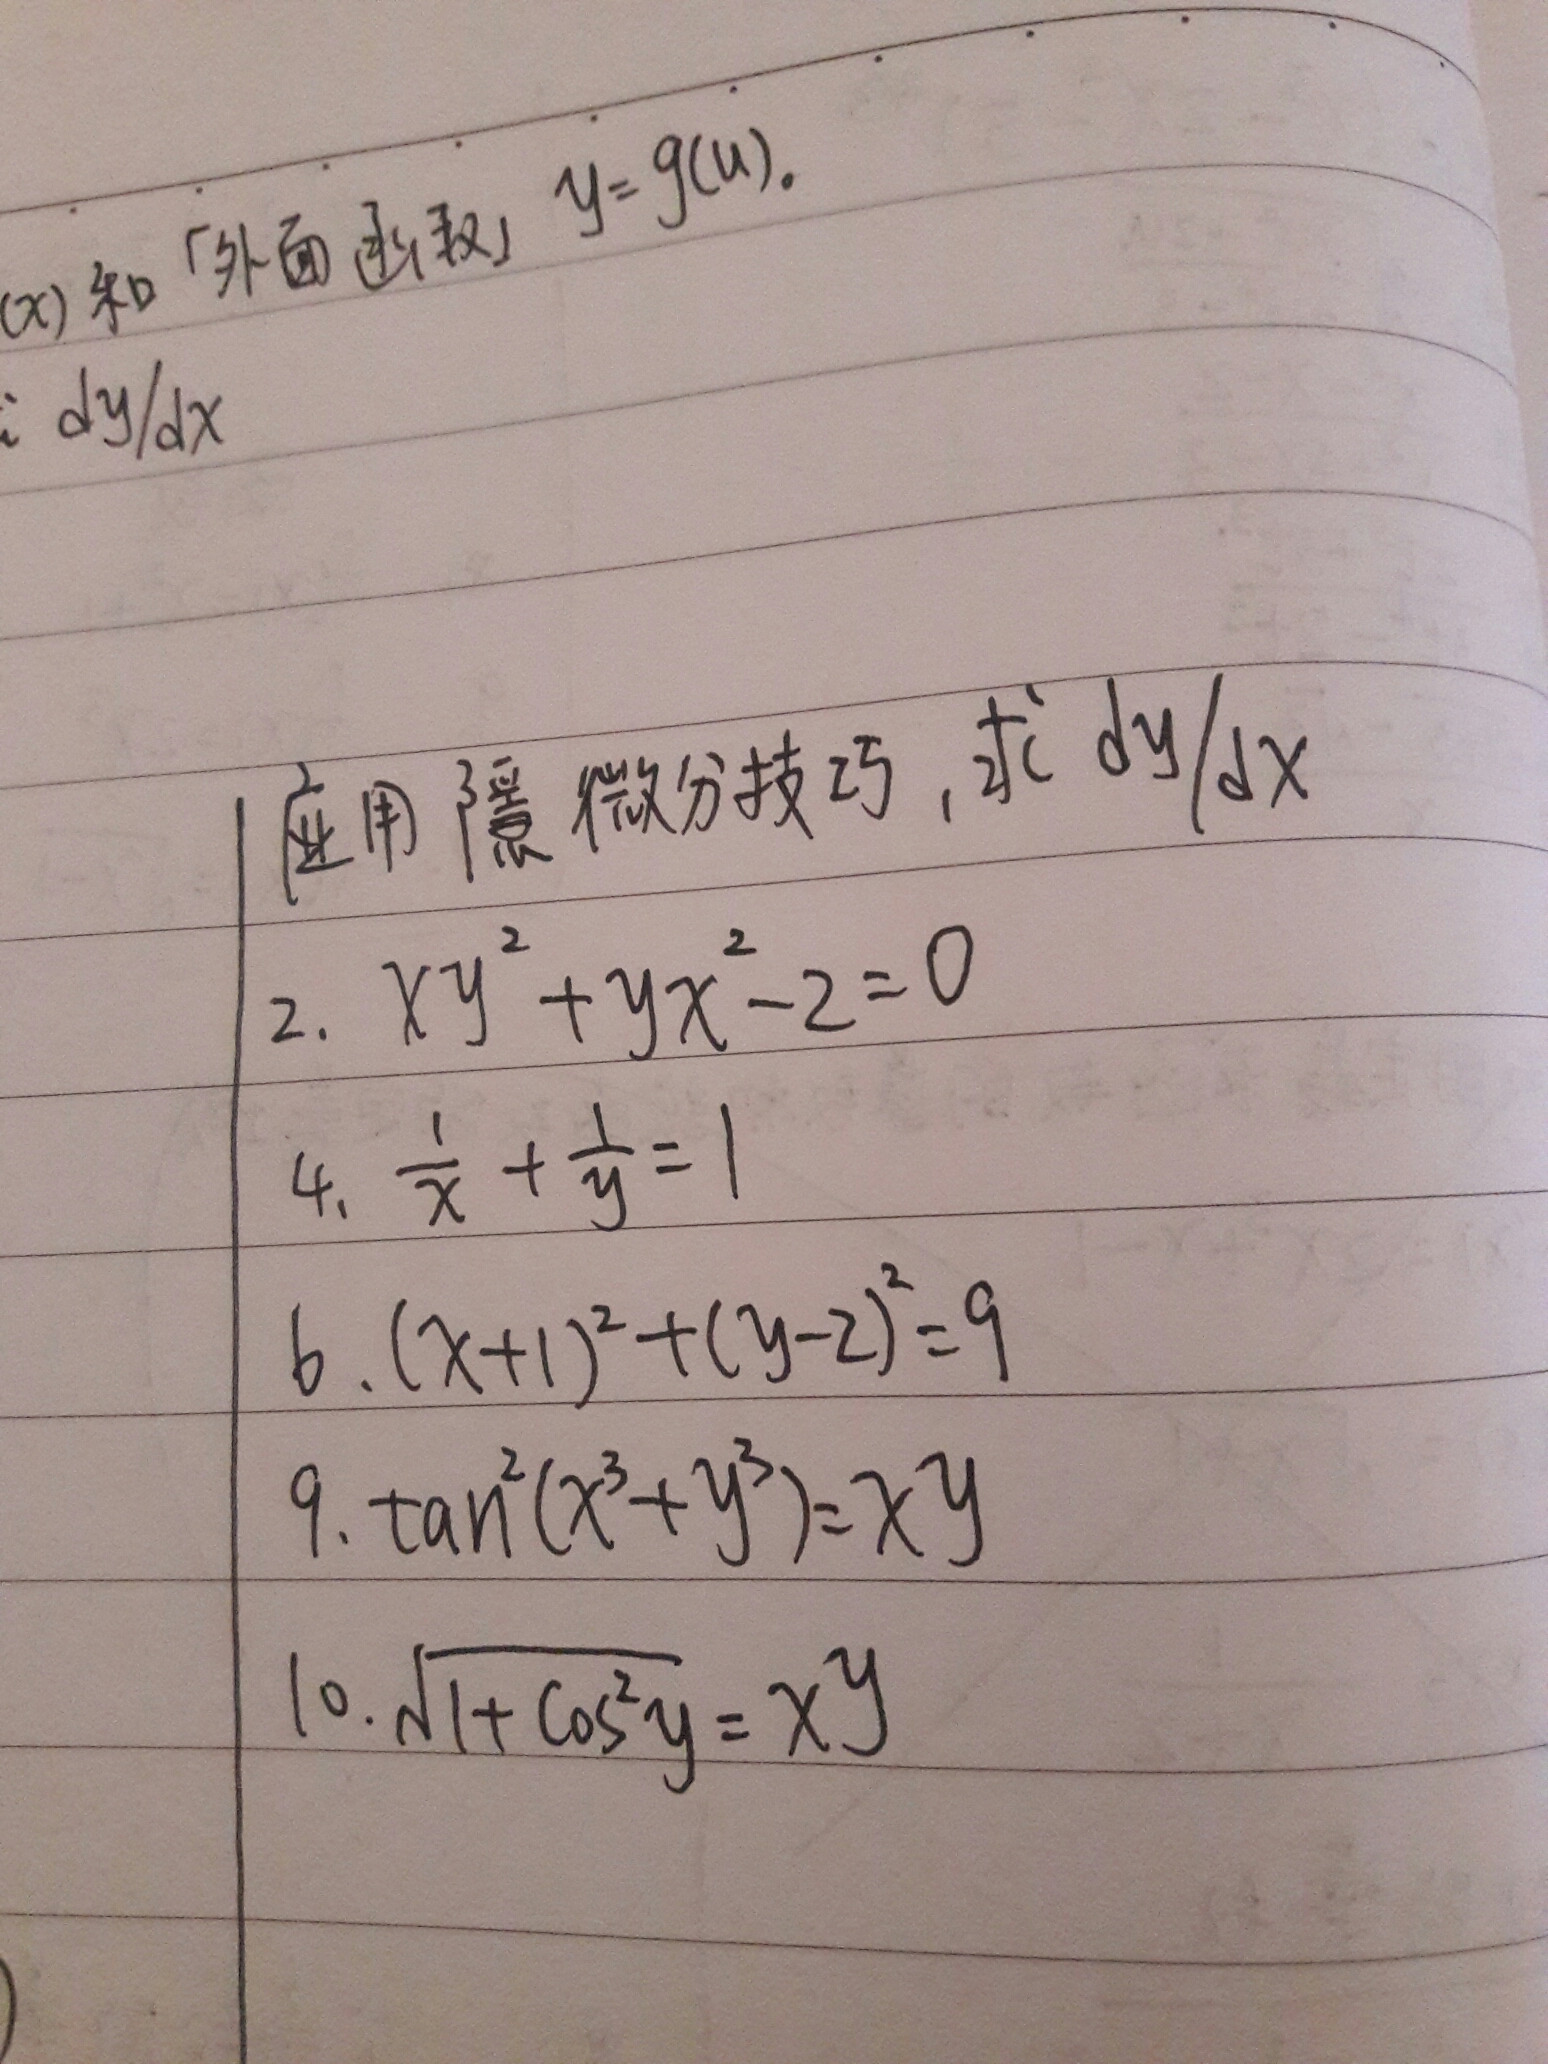 (x) 和「外面函数」 y=g(u).
求 dy/dx
应用隱微分技巧,求 dy/dx
2. xy²+yx²-2=0
4. 1/x + 1/y = 1
6. (x+1)²+(y-2)²=9
9. tan²(x³+y³)=xy
10. √(1+cos²y) = xy